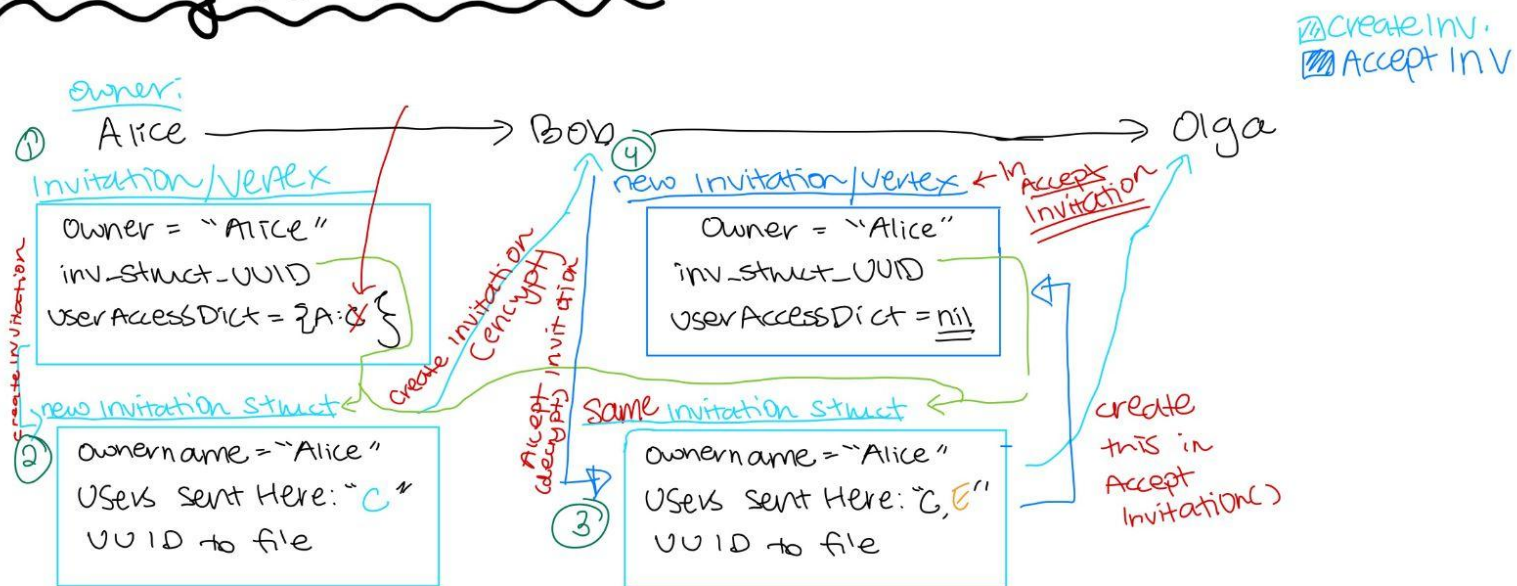 createInv.
Accept Inv
owner:
① Alice
Bob
Olga
Invitation/vertex
Owner = "Alice"
inv_struct_UUID
userAccessDict = {A: }
create invitation
new invitation struct
②
Ownername = "Alice"
Users sent Here: "C"
UUID to file
create invitation
(encrypt)
Accept invitation
(decrypt)
④
new invitation/vertex ← In
Accept
Invitation
Owner = "Alice"
inv_struct_UUID
userAccessDict = nil
same invitation struct
③
Ownername = "Alice"
Users sent Here: "C, E"
UUID to file
create
this in
Accept
Invitation()